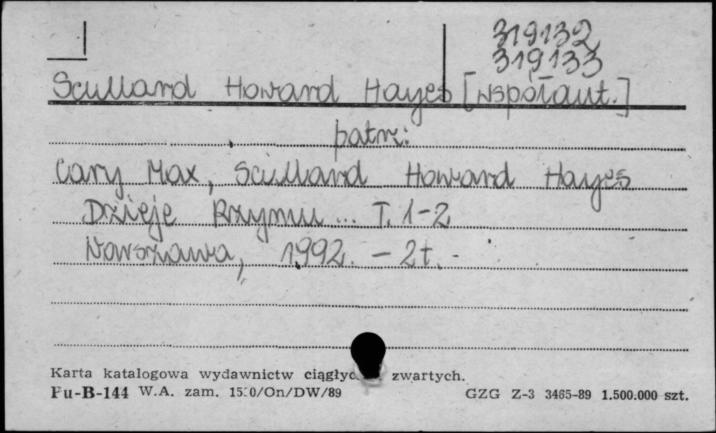 319132
319133
Scullard Howard Hayes [współaut.]
patrz:
Cary Max, Scullard Howard Hayes
Dzieje Rzymu... T. 1-2
Warszawa, 1992. - 2t. -
Karta katalogowa wydawnictw ciągłyc zwartych.
Pu-B-144 W.A. zam. 1500/On/DW/89 GZG Z-3 3465-89 1.500.000 szt.